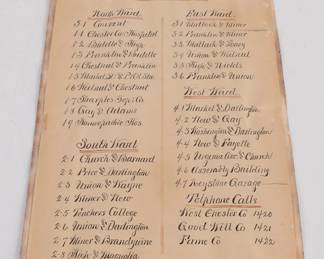 North Ward
3 1 Convent
1-1 Chester Co Hospital
1-2 Biddle & High
1-3 Franklin & Biddle
1-4 Chestnut & Franklin
1-5 Market St &
1-6 & Chestnut
1-7 Sharples Sep. Co
1-8 Gay & Adams
1-9 Homeopathic Hos.
South Ward
2-1 Church & Barnard
2-2 Price & Darlington
2-3 Union & Wayne
2-4 Miner & New
2-5 Teachers College
2-6 Union & Darlington
2-7 Miner & Brandywine
2-8 High & Magnolia
East Ward
3-1 Matlack & Miner
3-2 Franklin & Miner
3-3 Matlack &
3-4 Union & Walnut
3-5 High &
3-6 Franklin & Union
West Ward
4-1 Market & Darlington
4-2 New & Gay
4-3 Washington & Darlington
4-4 New & Fayette
4-5 Virginia Ave & Church
4-6 Assembly Building
4-7 Keystone Garage
Telphone Calls
West Chester Co 1420
Good Will Co 1421
Fame Co 1422